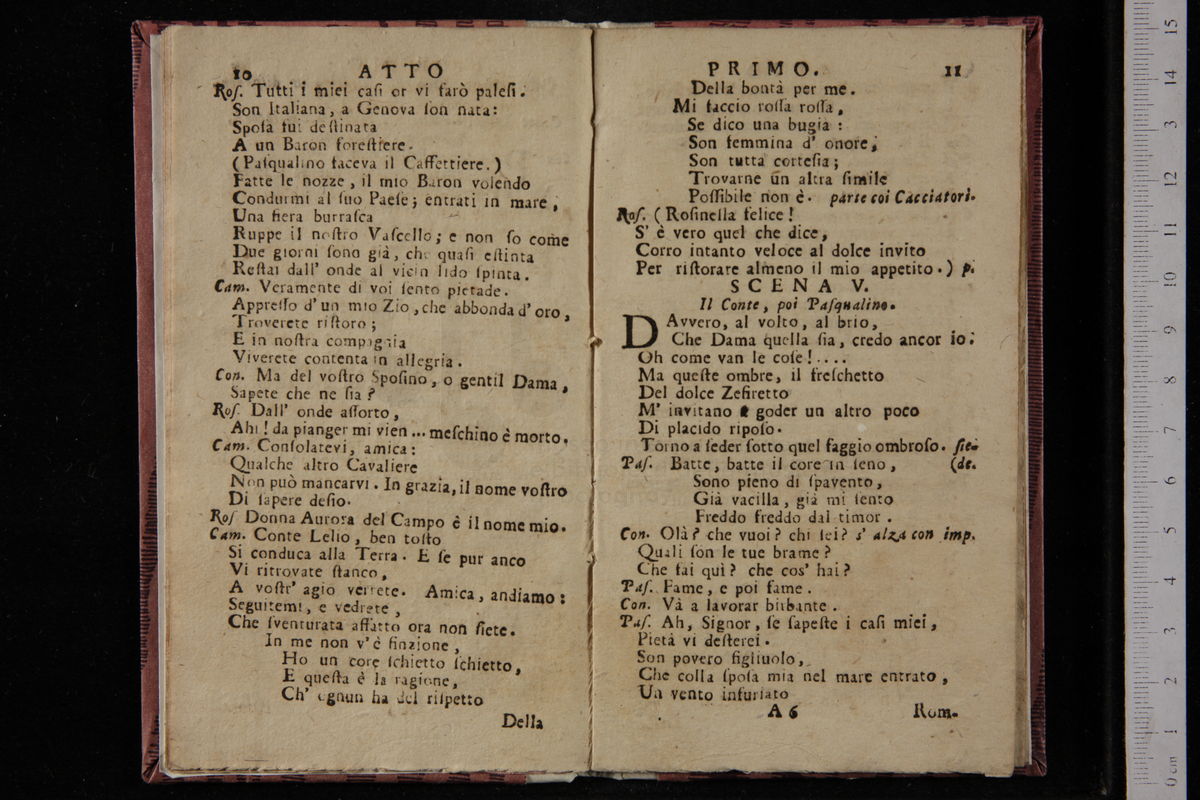 10 ATTO
Roſ. Tutti i miei caſi or vi farò paleſi.
Son Italiana, a Genova ſon nata:
Spoſa fui deſtinata
A un Baron foreſtiere.
(Paſqualino faceva il Caffettiere.)
Fatte le nozze, il mio Baron volendo
Condurmi al ſuo Paeſe; entrati in mare,
Una fiera burraſca
Ruppe il noſtro Vaſcello; e non ſo come
Due giorni ſono già, che quaſi eſtinta
Reſtai dall' onde al vicin lido ſpinta.
Cam. Veramente di voi ſento pietade.
Appreſſo d' un mio Zio, che abbonda d' oro,
Troverete riſtoro;
E in noſtra compagnia
Viverete contenta in allegria.
Con. Ma del voſtro Spoſino, o gentil Dama,
Sapete che ne ſia?
Roſ. Dall' onde aſſorto,
Ahi! da pianger mi vien ... meſchino è morto.
Cam. Conſolatevi, amica:
Qualche altro Cavaliere
Non può mancarvi. In grazia, il nome voſtro
Di ſapere deſio.
Roſ Donna Aurora del Campo è il nome mio.
Cam. Conte Lelio, ben toſto
Si conduca alla Terra. E ſe pur anco
Vi ritrovate ſtanco,
A voſtr' agio verrete. Amica, andiamo:
Seguitemi, e vedrete,
Che ſventurata affatto ora non ſiete.
In me non v' è finzione,
Ho un core ſchietto ſchietto,
E queſta è la ragione,
Ch' ognun ha del riſpetto
Della
PRIMO. 11
Della bontà per me.
Mi faccio roſſa roſſa,
Se dico una bugia:
Son femmina d' onore,
Son tutta corteſia;
Trovarne un altra ſimile
Poſſibile non è. parte coi Cacciatori.
Roſ. (Roſinella felice!
S' è vero quel che dice,
Corro intanto veloce al dolce invito
Per riſtorare almeno il mio appetito.) p.
SCENA V.
Il Conte, poi Paſqualino.
DAvvero, al volto, al brio,
Che Dama quella ſia, credo ancor io.
Oh come van le coſe!....
Ma queſte ombre, il freſchetto
Del dolce Zefiretto
M' invitano a goder un altro poco
Di placido ripoſo.
Torno a ſeder ſotto quel faggio ombroſo. ſie-
Paſ. Batte, batte il core in ſeno, (de.
Sono pieno di ſpavento,
Già vacilla, già mi ſento
Freddo freddo dal timor.
Con. Olà? che vuoi? chi ſei? s' alza con imp.
Quali ſon le tue brame?
Che fai quì? che cos' hai?
Paſ. Fame, e poi fame.
Con. Và a lavorar birbante.
Paſ. Ah, Signor, ſe ſapeſte i caſi miei,
Pietà vi deſterei.
Son povero figliuolo,
Che colla ſpoſa mia nel mare entrato,
Un vento infuriato
A 6 Rom-
15
14
13
12
11
10
9
8
7
6
5
4
3
2
1
0 cm